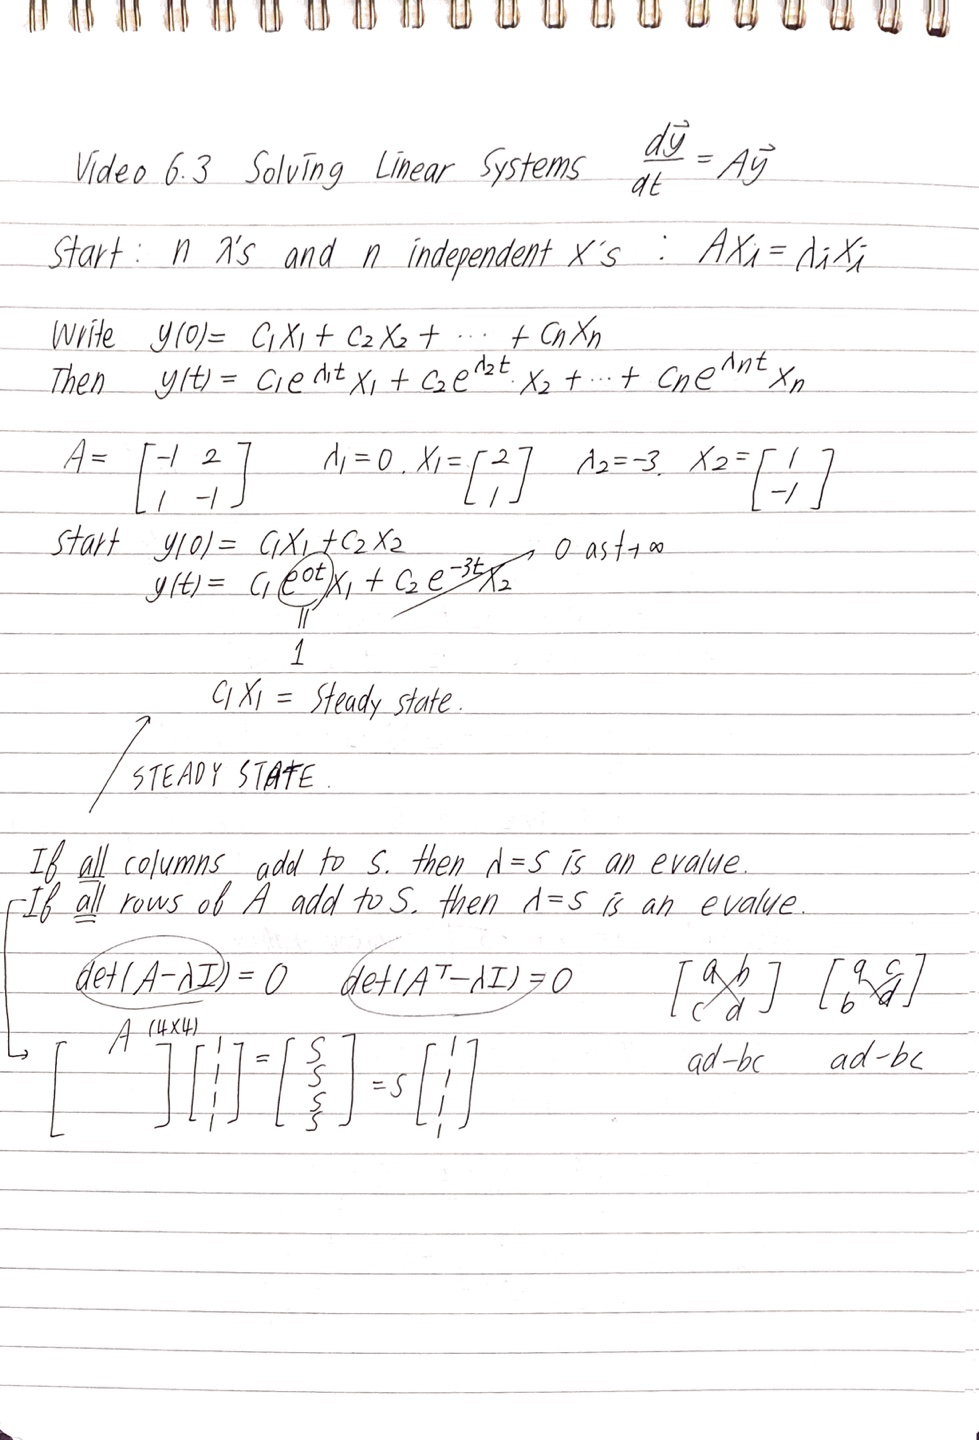 Video 6.3 Solving Linear Systems dy⃗/dt = Ay⃗
Start: n λ's and n independent x's : Axi = λixi
Write y(0) = C1X1 + C2X2 + ... + CnXn
Then y(t) = C1e^λ1t X1 + C2e^λ2t X2 + ... + Cne^λnt Xn
A = [-1 2; 1 -1] λ1=0. X1=[2; 1] λ2=-3. X2=[1; -1]
Start y(0) = C1X1 + C2X2
y(t) = C1 e^0t X1 + C2 e^-3t X2 → 0 as t→∞
=
1
C1X1 = Steady state.
STEADY STATE.
If all columns add to S. then λ=S is an evalue.
If all rows of A add to S. then λ=S is an evalue.
det(A-λI) = 0 det(A^T-λI) = 0 [a b; c d] [a c; b d]
A (4x4) ad-bc ad-bc
[ ] [1; 1; 1; 1] = [S; S; S; S] = S [1; 1; 1; 1]